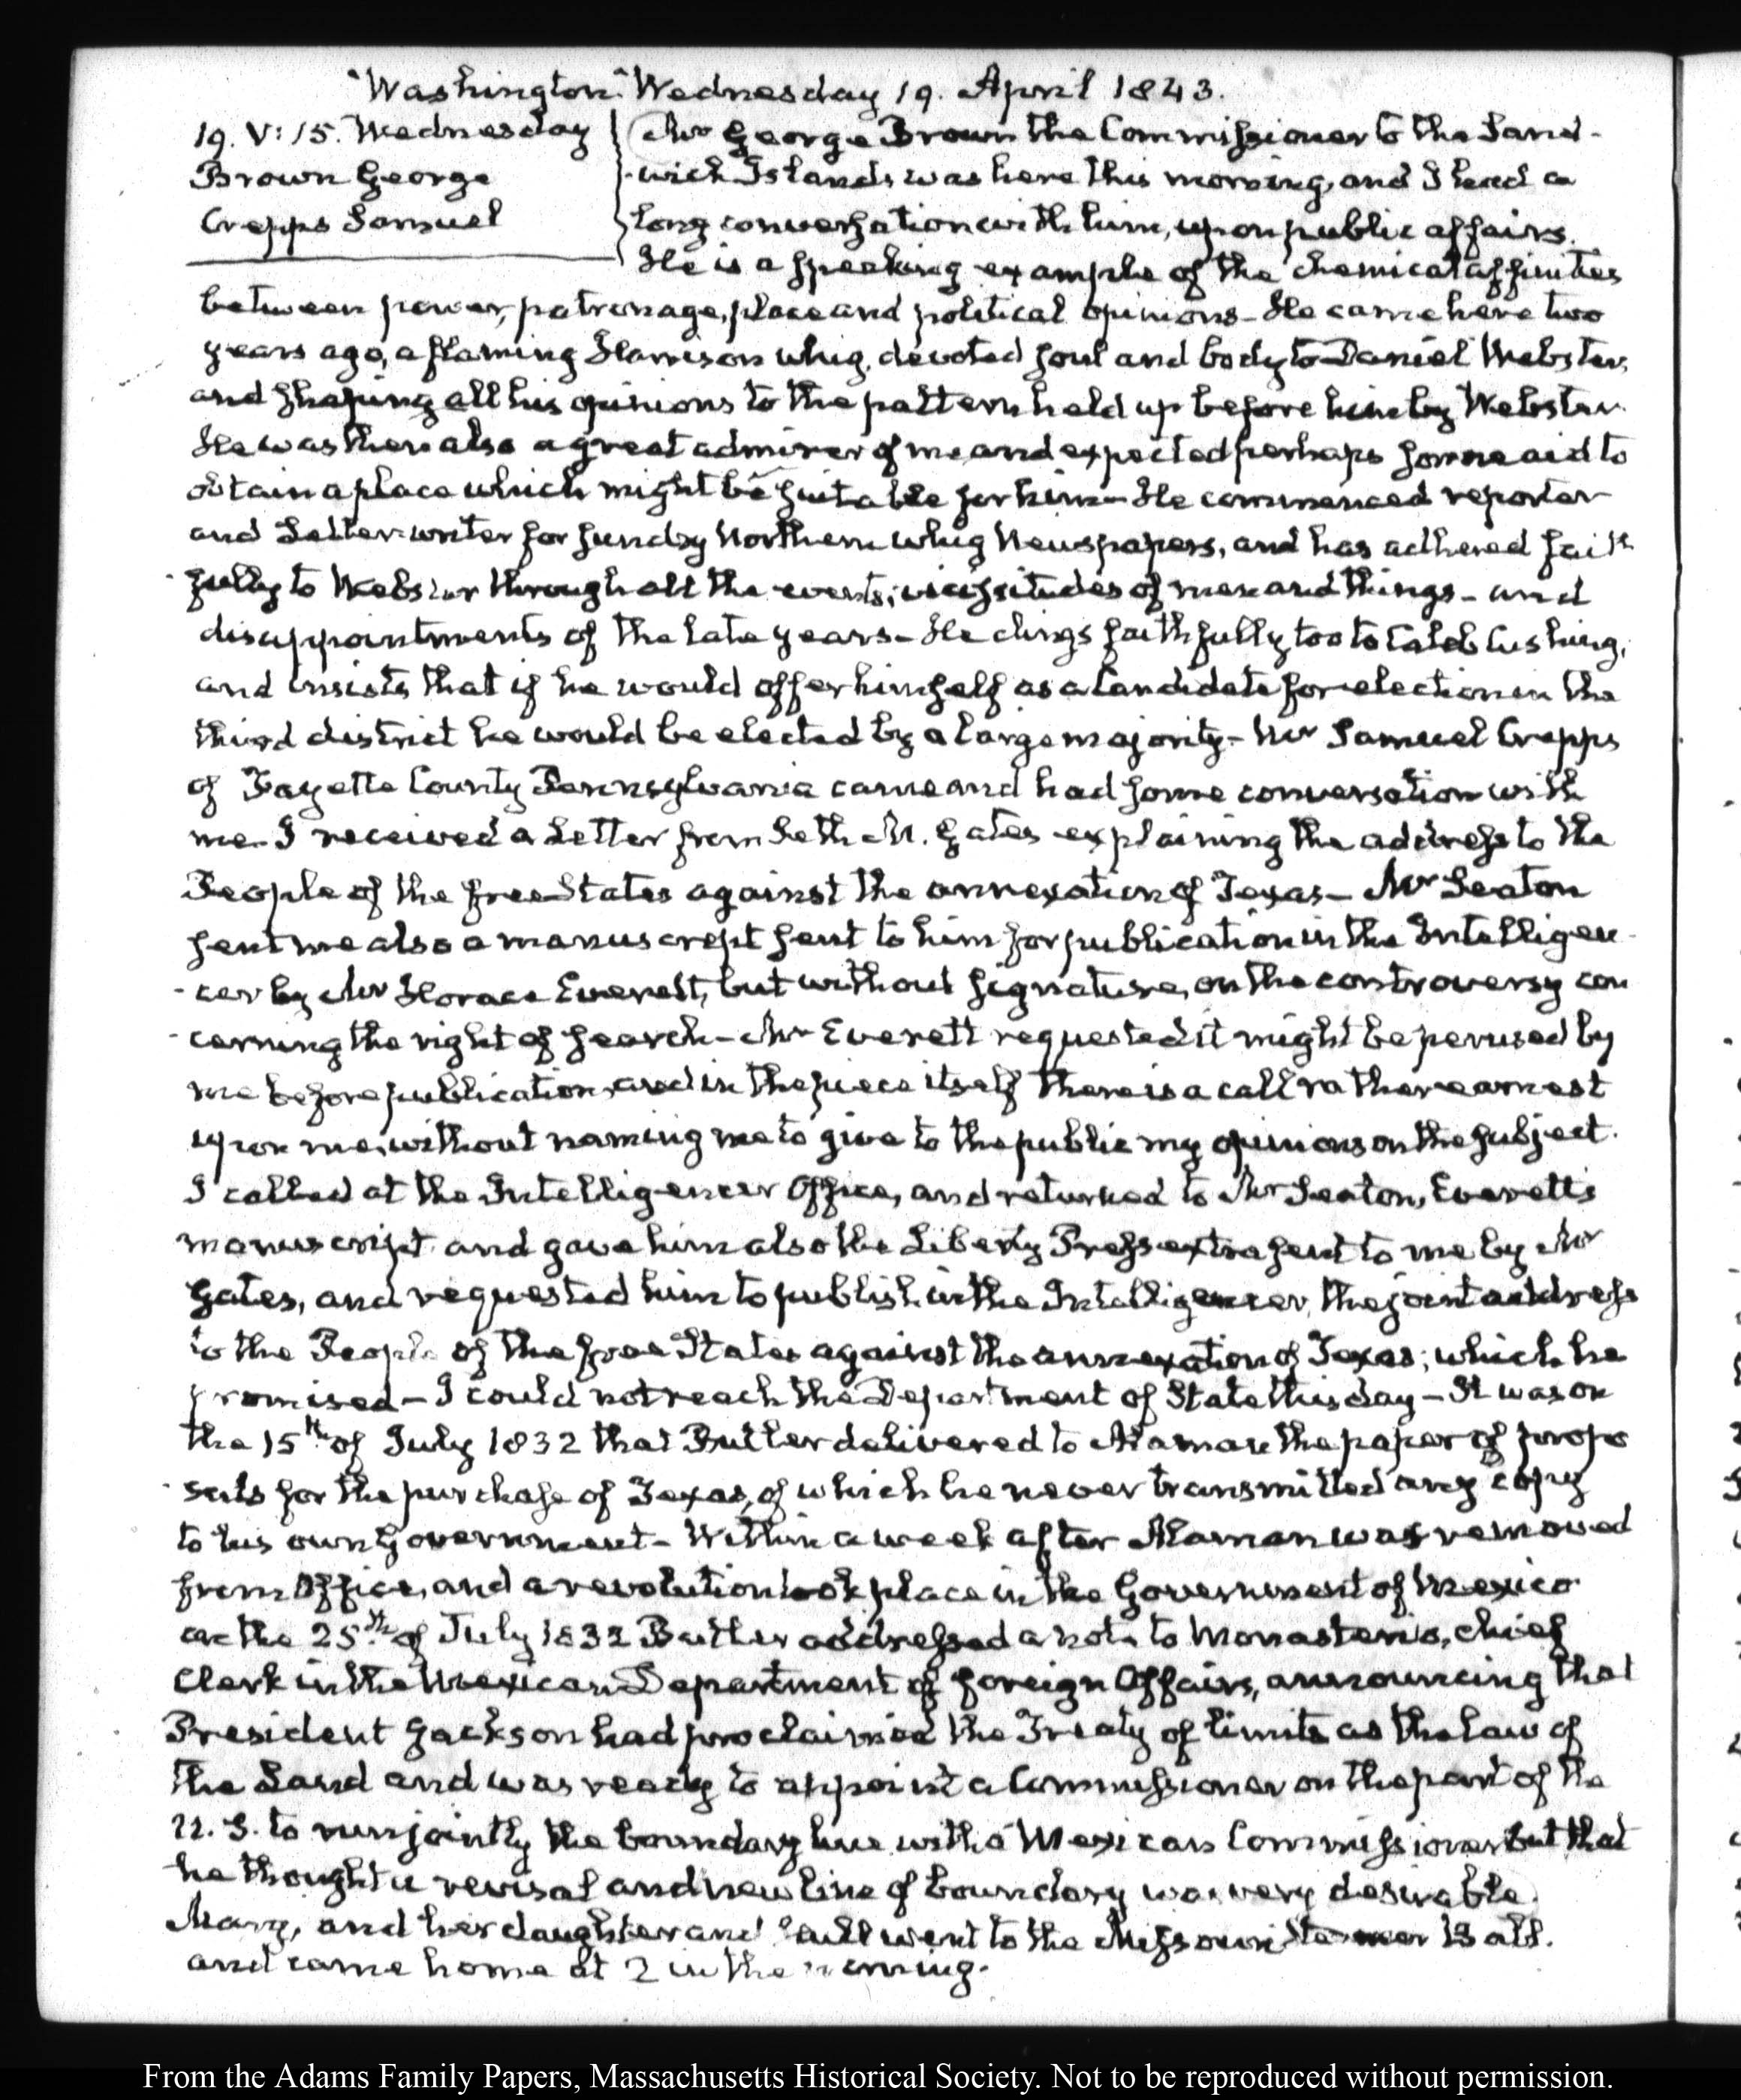 Washington Wednesday 19. April 1843.
19. V:15. Wednesday
Brown George
Crepps Samuel
Mr George Brown the Commissioner to the Sand-
-wich Islands was here this morning, and I had a
long conversation with him, upon public affairs.
He is a speaking example of the chemical affinities
between power, patronage, place and political opinions - He came here two
years ago, a flaming Harrison whig, devoted soul and body to Daniel Webster,
and shaping all his opinions to the pattern held up before him by Webster.
He was then also a great admirer of me and expected perhaps some aid to
obtain a place which might be suitable for him - He commenced reporter
and Letter-writer for sundry Northern Whig Newspapers, and has adhered faith
-fully to Webster through all the events, vicissitudes of men and things - and
disappointments of the late years - He clings faithfully too to Caleb Cushing,
and insists that if he would offer himself as a Candidate for election in the
third district he would be elected by a large majority - Mr Samuel Crepps
of Fayette County Pennsylvania came and had some conversation with
me. I received a Letter from Seth M. Gates explaining the address to the
People of the free States against the annexation of Texas - Mr Seaton
sent me also a manuscript sent to him for publication in the Intelligen-
-cer by Mr Horace Everett, but without signature, on the controversy con
-cerning the right of search - Mr Everett requested it might be perused by
me before publication, and in the piece itself there is a call rather earnest
upon me, without naming me to give to the public my opinions on the subject.
I called at the Intelligencer Office, and returned to Mr Seaton, Everett's
manuscript and gave him also the Liberty Press extra sent to me by Mr
Gates, and requested him to publish in the Intelligencer, the joint address
to the People of the free States against the annexation of Texas; which he
promised - I could not reach the Department of State this day - It was on
the 15th of July 1832 that Butler delivered to Alaman the paper of propo
-sals for the purchase of Texas, of which he never transmitted any copy
to his own Government - Within a week after Alaman was removed
from Office, and a revolution took place in the Government of Mexico
on the 25th of July 1832 Butler addressed a note to Monasterio, chief
Clerk in the Mexican Department of foreign Affairs, announcing that
President Jackson had proclaimed the Treaty of limits as the law of
the Land and was ready to appoint a Commissioner on the part of the
U. S. to run jointly the boundary line with a Mexican Commissioner but that
he thought a revisal and new line of boundary was very desirable.
Mary, and her daughter and went to the Missouri Steamer Ball.
and came home at 2 in the morning.
From the Adams Family Papers, Massachusetts Historical Society. Not to be reproduced without permission.